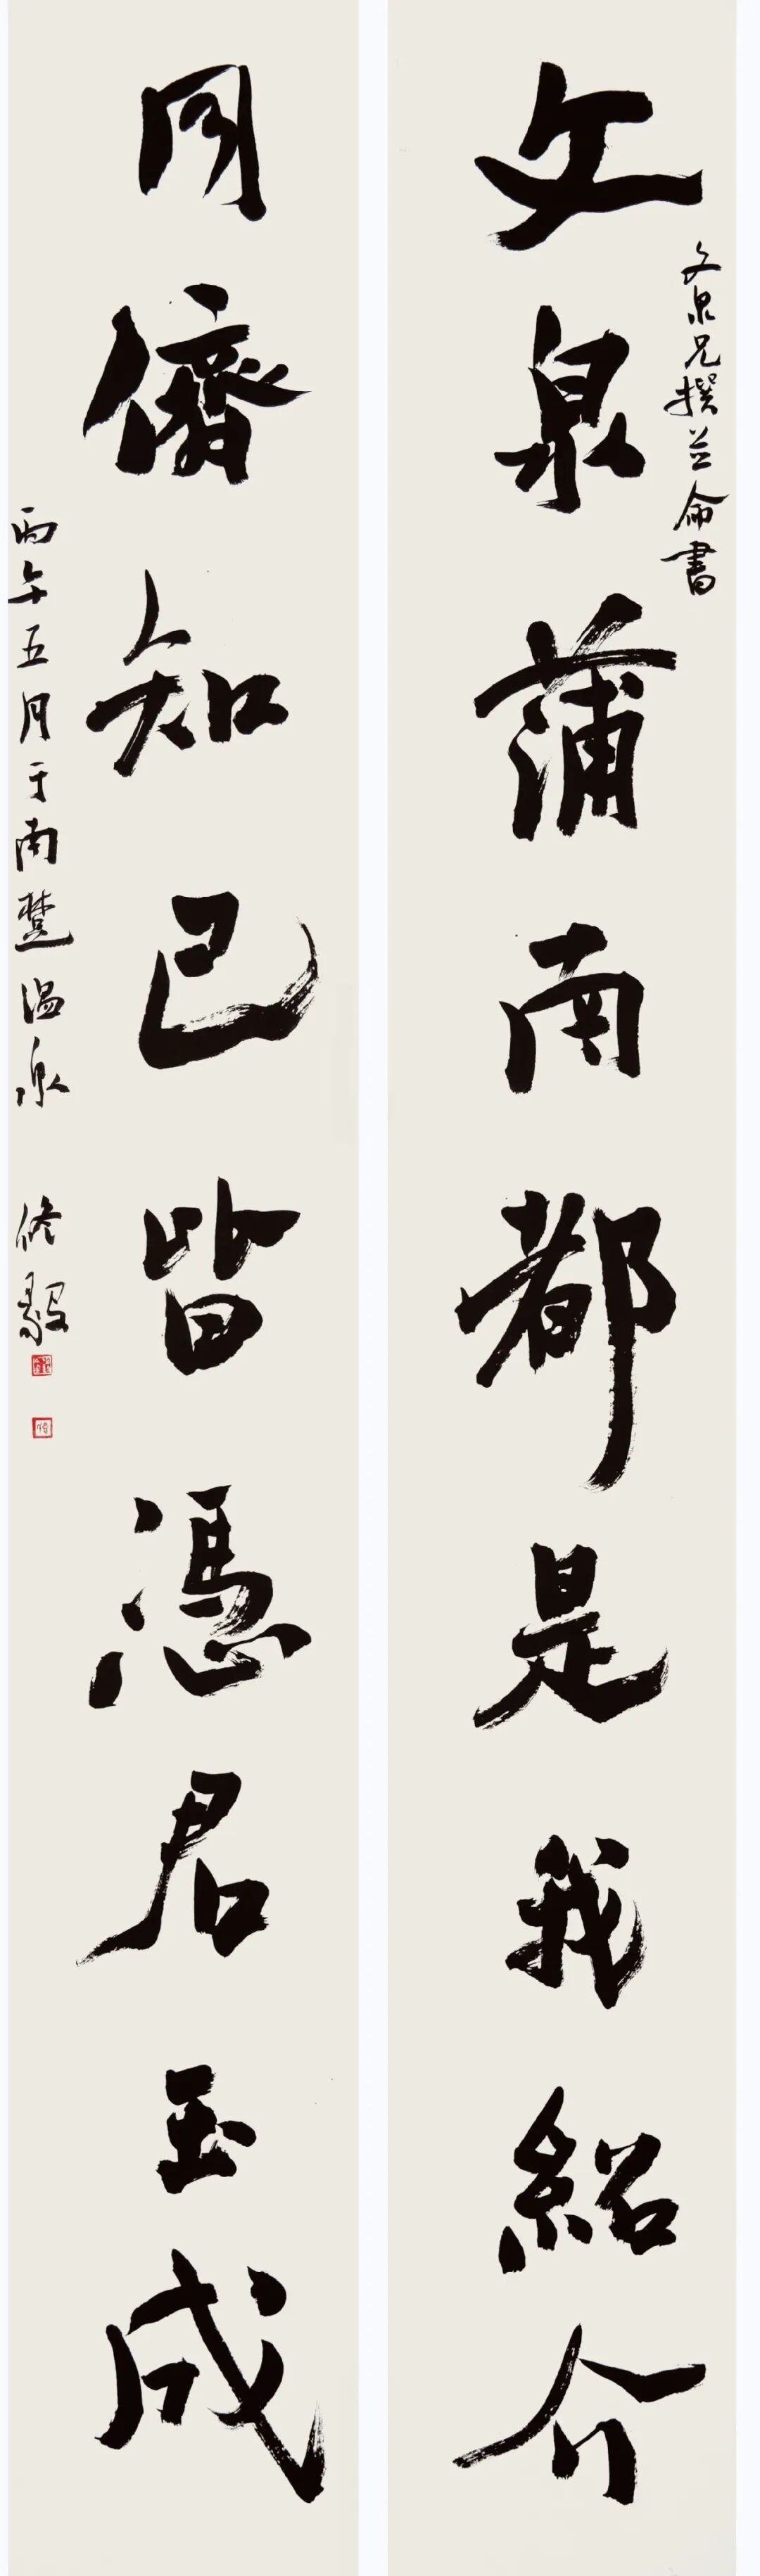 文泉蒲南都是我紹介
文泉兄撰並命書
同儕知己皆憑君玉成
丙午五月于南楚温泉 修毅